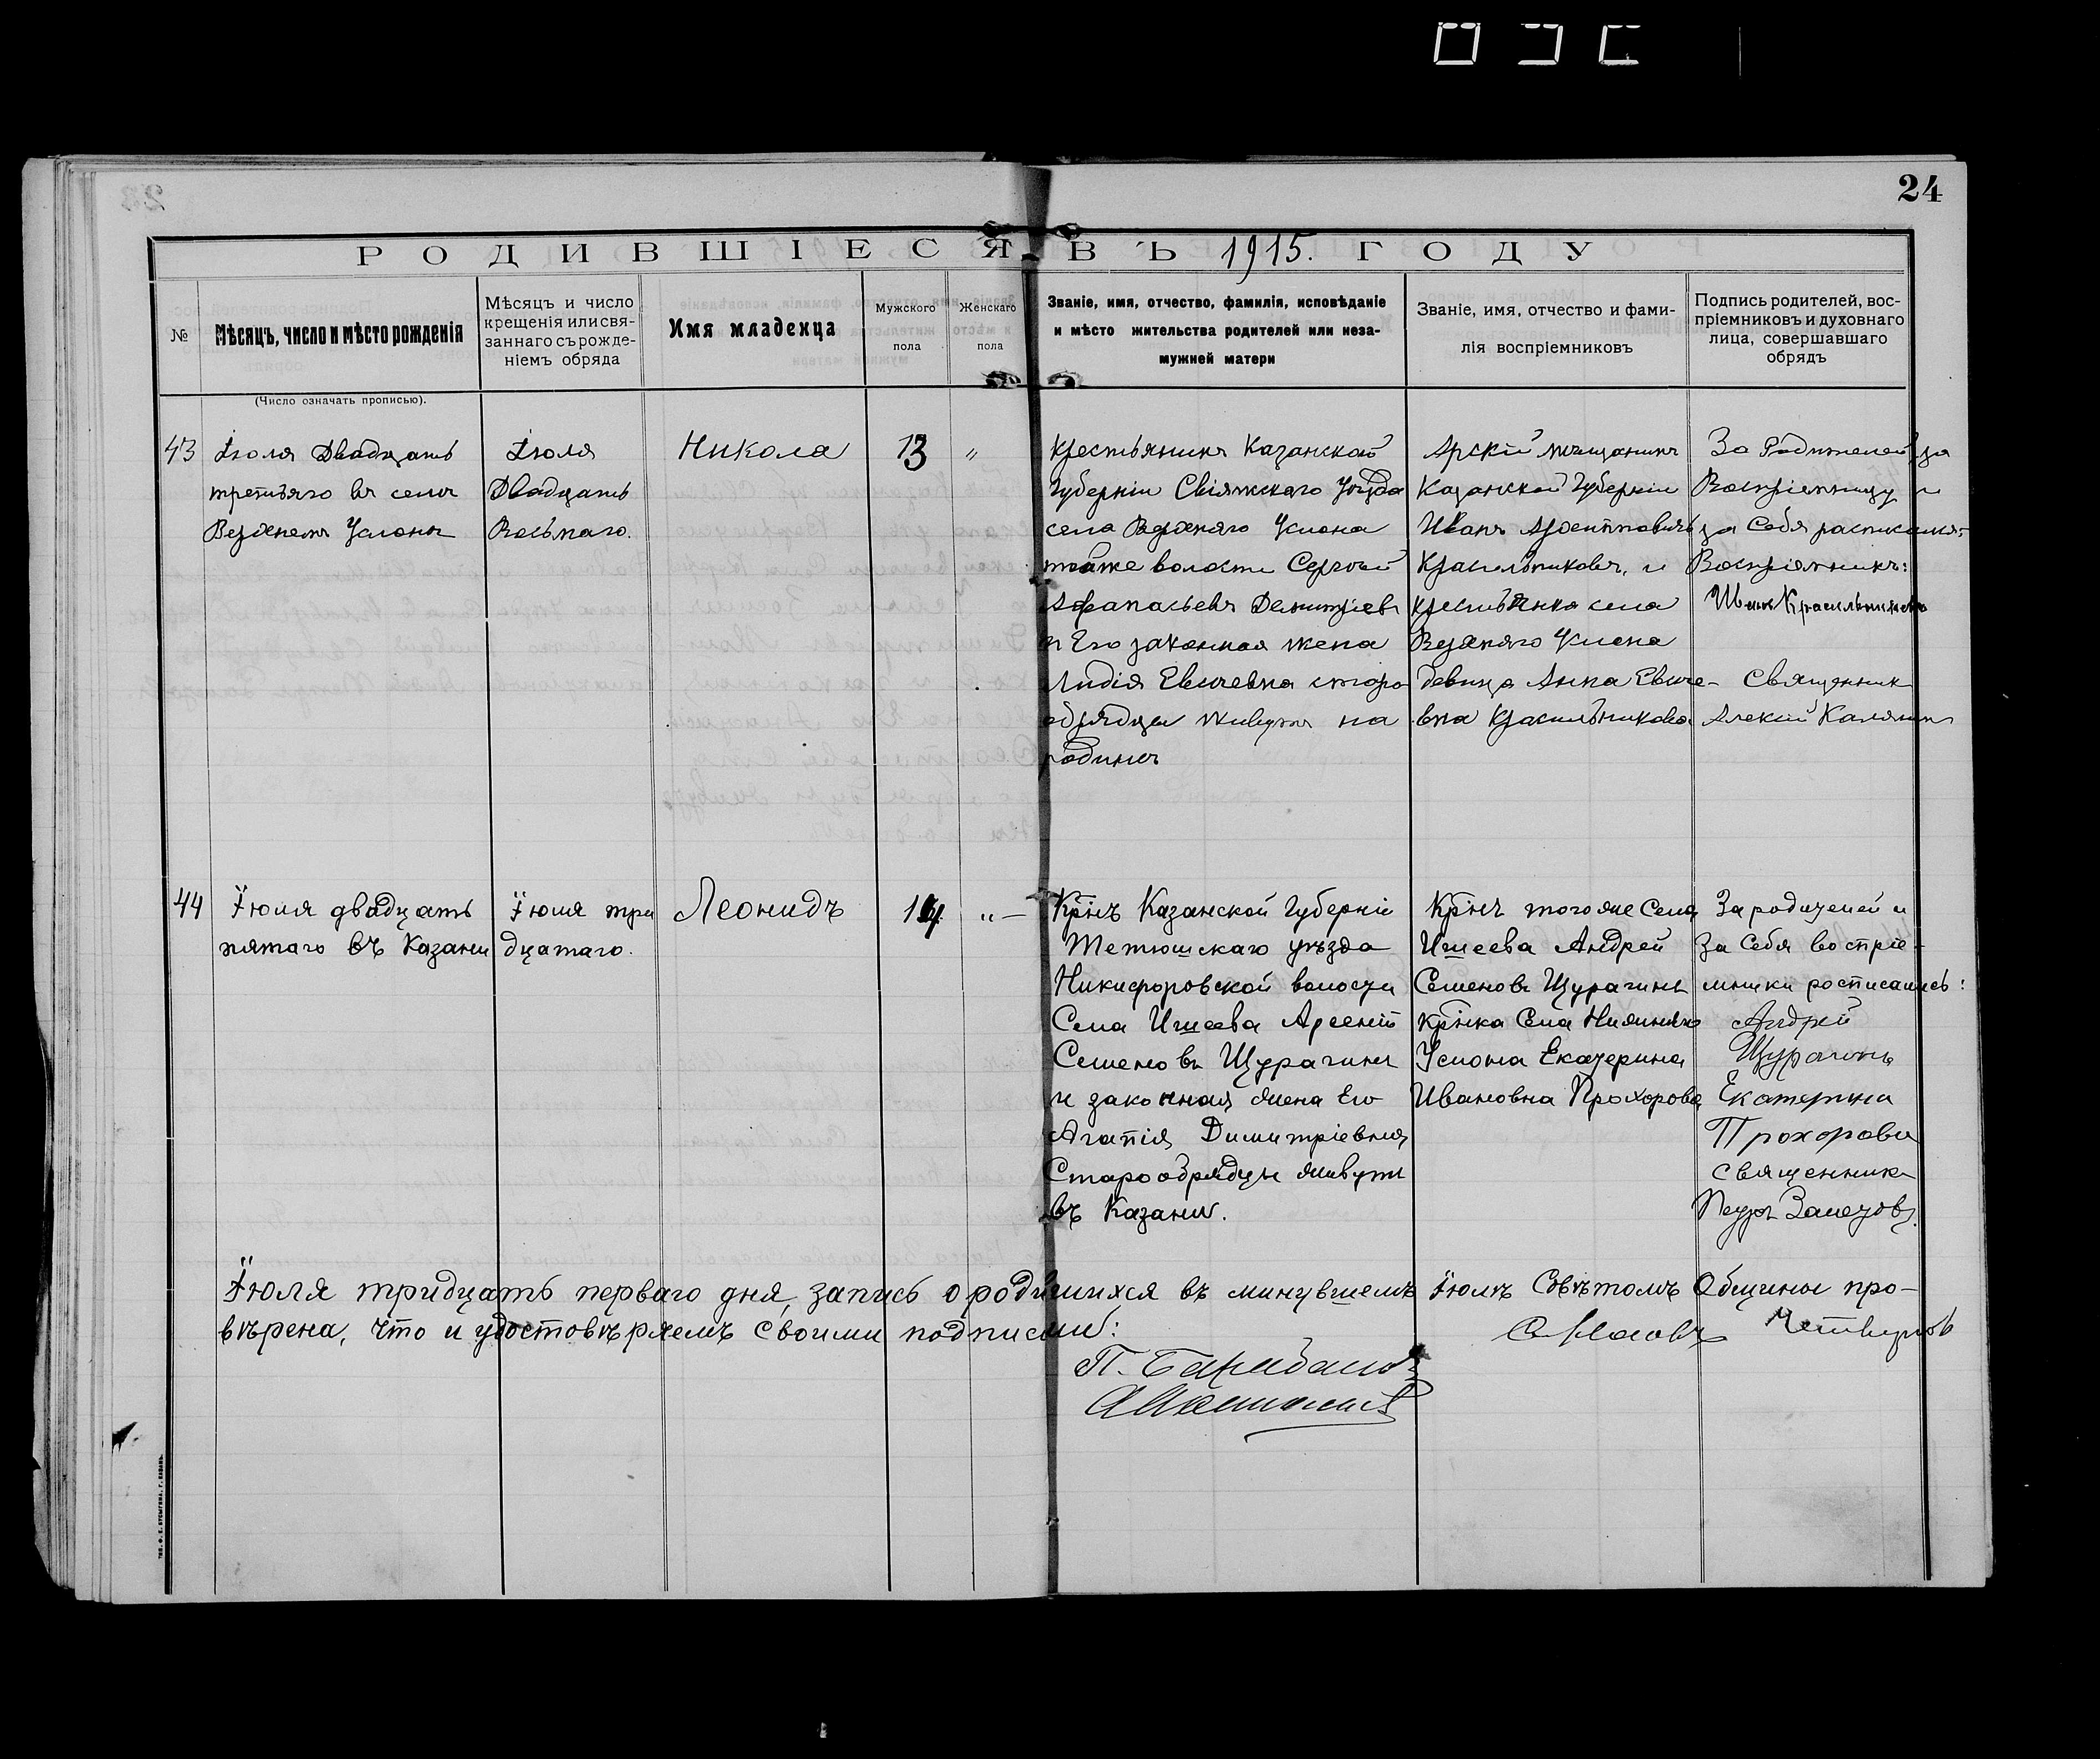 24
РОДИВШІЕСЯ ВЪ 1915. ГОДУ
№
Мѣсяцъ, число и мѣсто рожденія
Мѣсяцъ и число
крещенія или свя-
заннаго съ рожде-
ніемъ обряда
Имя младенца
Мужского
пола
Женскаго
пола
Званіе, имя, отчество, фамилія, исповѣданіе
и мѣсто жительства родителей или неза-
мужней матери
Званіе, имя, отчество и фами-
лія воспріемниковъ
Подпись родителей, вос-
пріемниковъ и духовнаго
лица, совершавшаго
обрядъ
(Число означать прописью).
43
Іюля Двадцать
третьяго въ селѣ
Верхнемъ Услонѣ
Іюля
Двадцать
Восьмаго.
Никола
13
"
Крестьянинъ Казанской
Губерніи Свіяжскаго Уѣзда
села Верхняго Услона
тойже волости Сергѣй
Афанасьевъ Демитріевъ
и Его законная жена
Лидія Евсичевна старо
обрядцы живутъ на
родинѣ
Арскій мѣщанинъ
Казанской Губерніи
Иванъ
Красильниковъ, и
крестьянка села
Верхняго Услона
девица Анна
вна Красильникова
За Родителей, за
Воспріемницу и
за Себя
Воспріемникъ:
Иванъ Красильниковъ
Священникъ
Алексій Калягинъ
44
Іюля двадцать
пятаго въ Казани
Іюля три
дцатаго.
Леонидъ
14
" —
Крінъ Казанской Губерніи
Тетюшскаго уѣзда
Никифоровской волости
Села Ишеева Арсеній
Семеновъ Щурагинъ
и законная жена Его
Агапія Димитріевна
Старообрядцы живутъ
въ Казани.
Крінъ тогоже Села
Ишеева Андрей
Семеновъ Щурагинъ
Крінка Села Нижняго
Услона Екатерина
Ивановна Прохорова
За родителей и
За Себя воспріе-
мники росписались:
Андрей
Щурагинъ
Екатерина
Прохорова
священникъ
Петръ Залетовъ.
Іюля тридцать перваго дня, запись о родившихся въ минувшемъ Іюлѣ Совѣтомъ Общины про-
вѣрена, что и удостовѣряемъ своими подписьми:
Четверговъ
П. Барабановъ